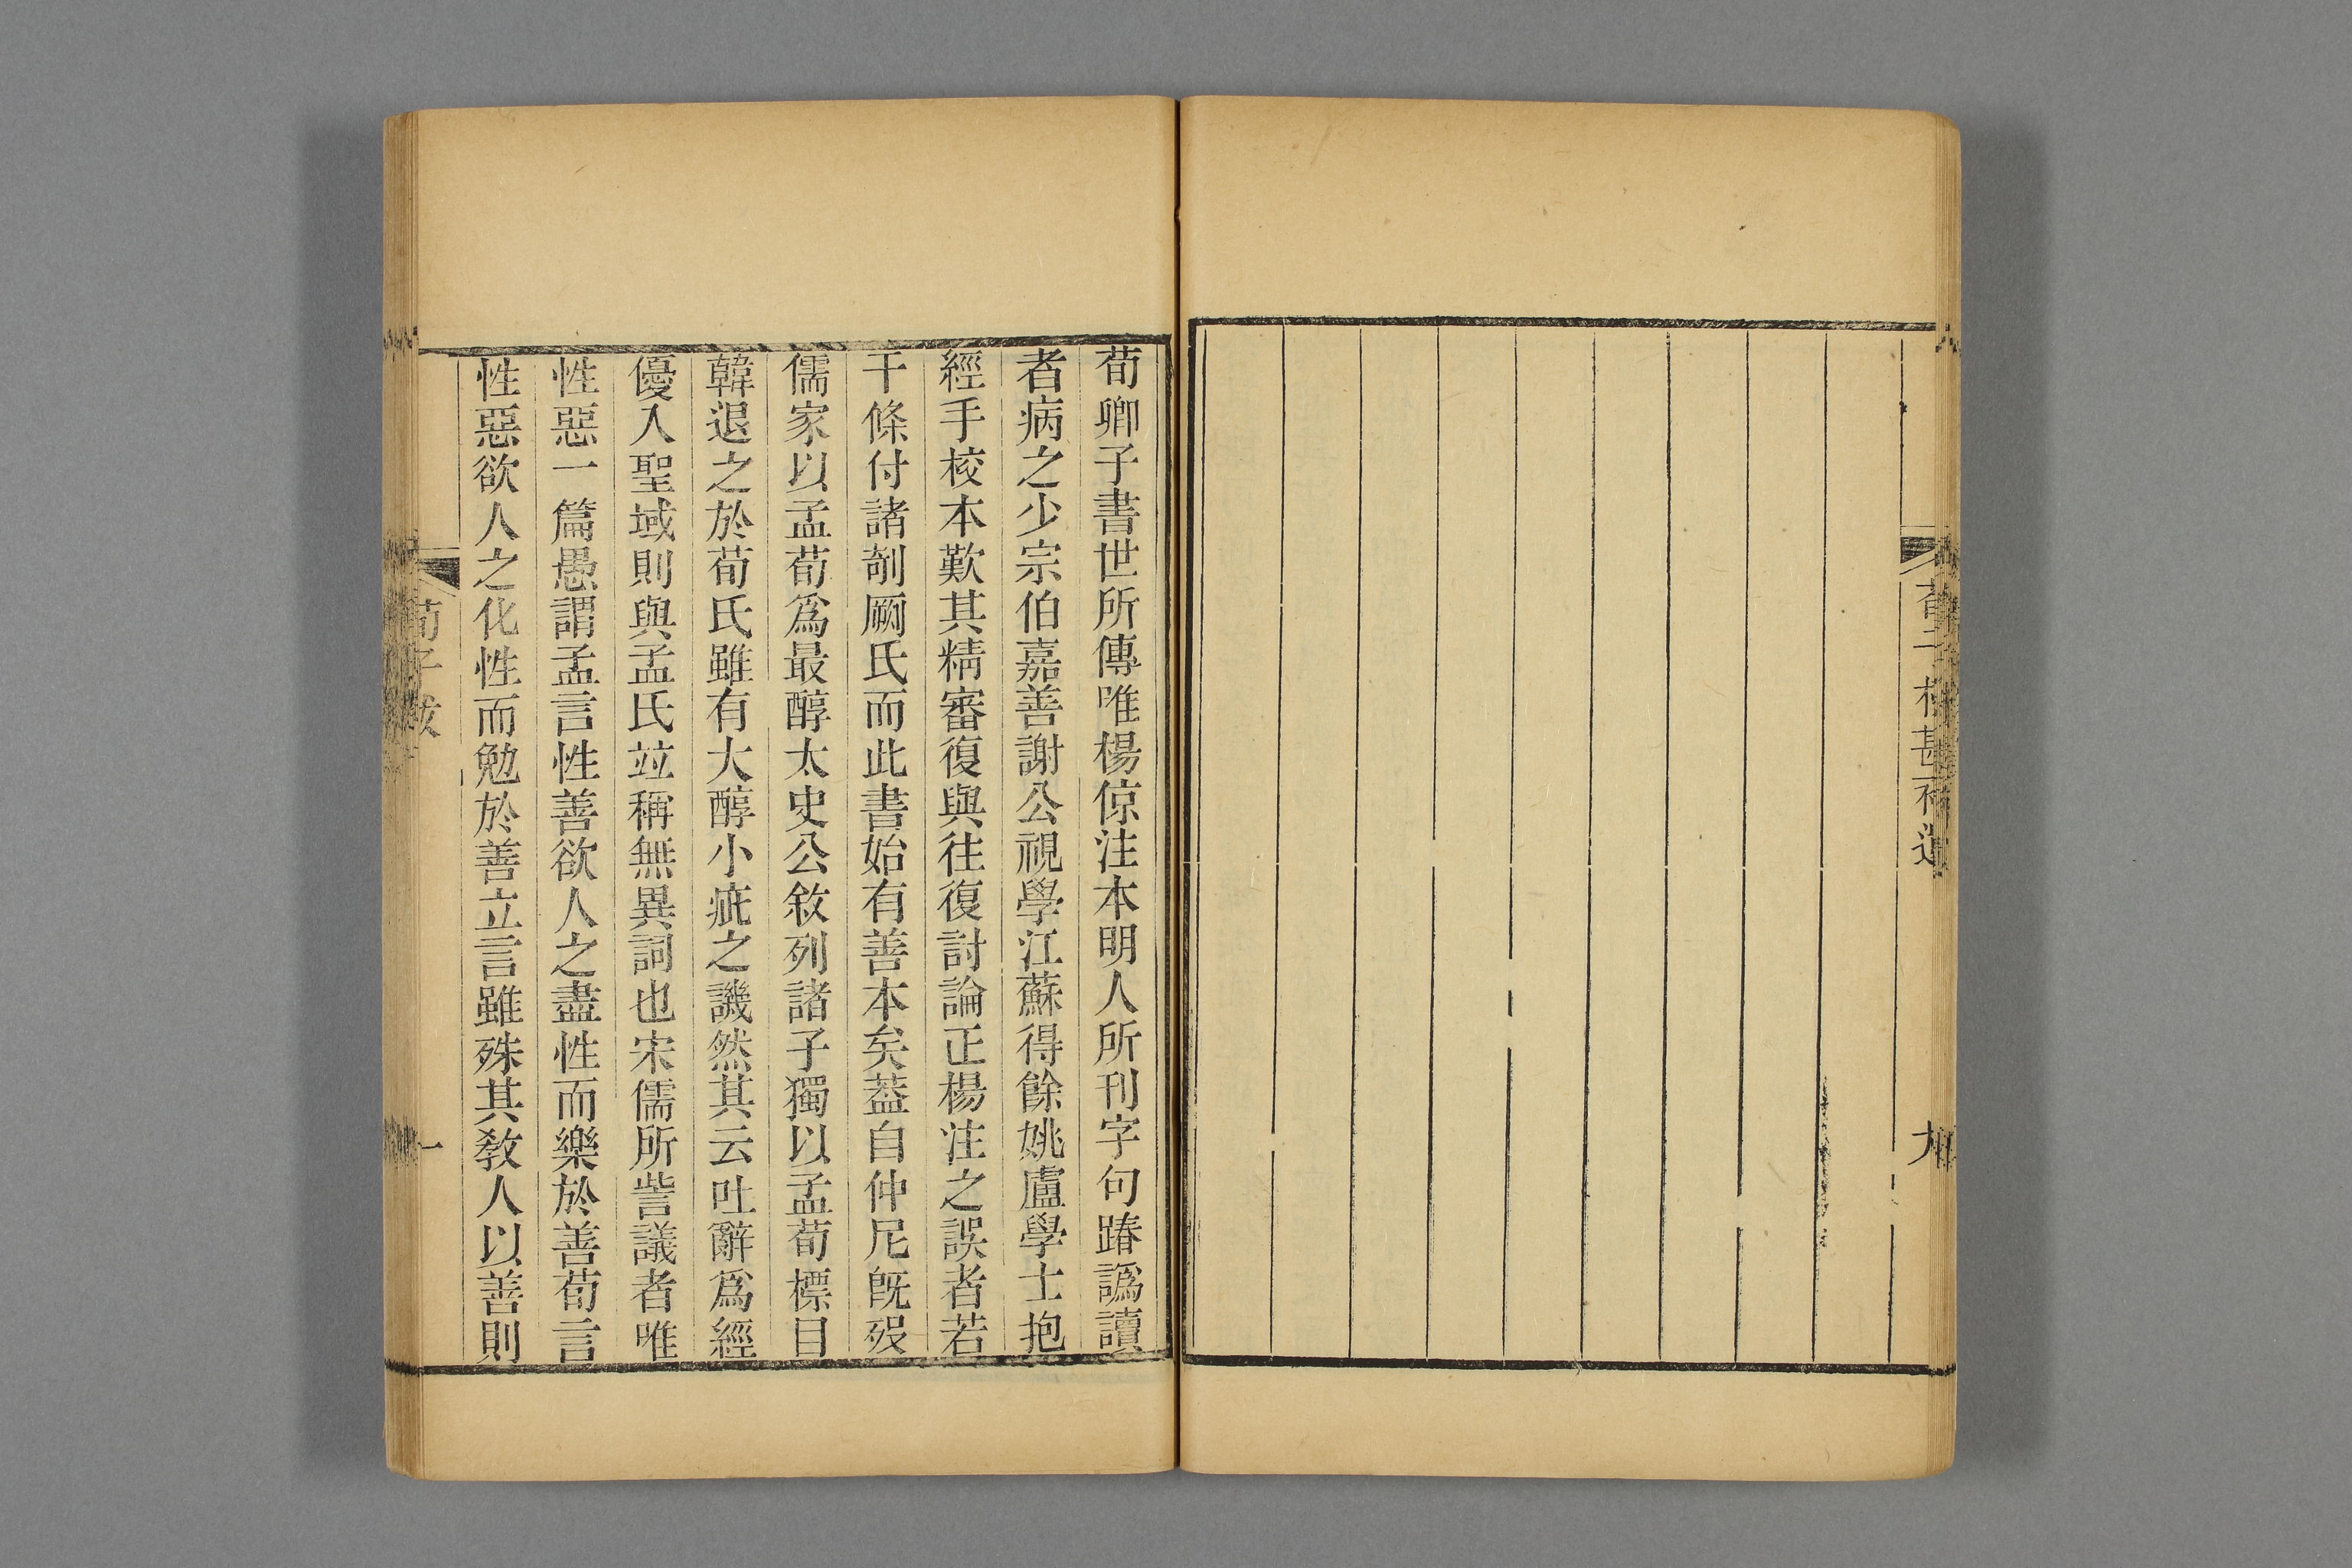 荀子校勘補遺
九
荀卿子書世所傳唯楊倞注本明人所刊字句踳譌讀
者病之少宗伯嘉善謝公視學江蘇得餘姚盧學士抱
經手校本歎其精審復與往復討論正楊注之誤者若
干條付諸剞劂氏而此書始有善本矣葢自仲尼旣歿
儒家以孟荀爲最醇太史公敘列諸子獨以孟荀標目
韓退之於荀氏雖有大醇小疵之譏然其云吐辭爲經
優入聖域則與孟氏竝稱無異詞也宋儒所訾議者唯
性惡一篇愚謂孟言性善欲人之盡性而樂於善荀言
性惡欲人之化性而勉於善立言雖殊其教人以善則
荀子跋
一